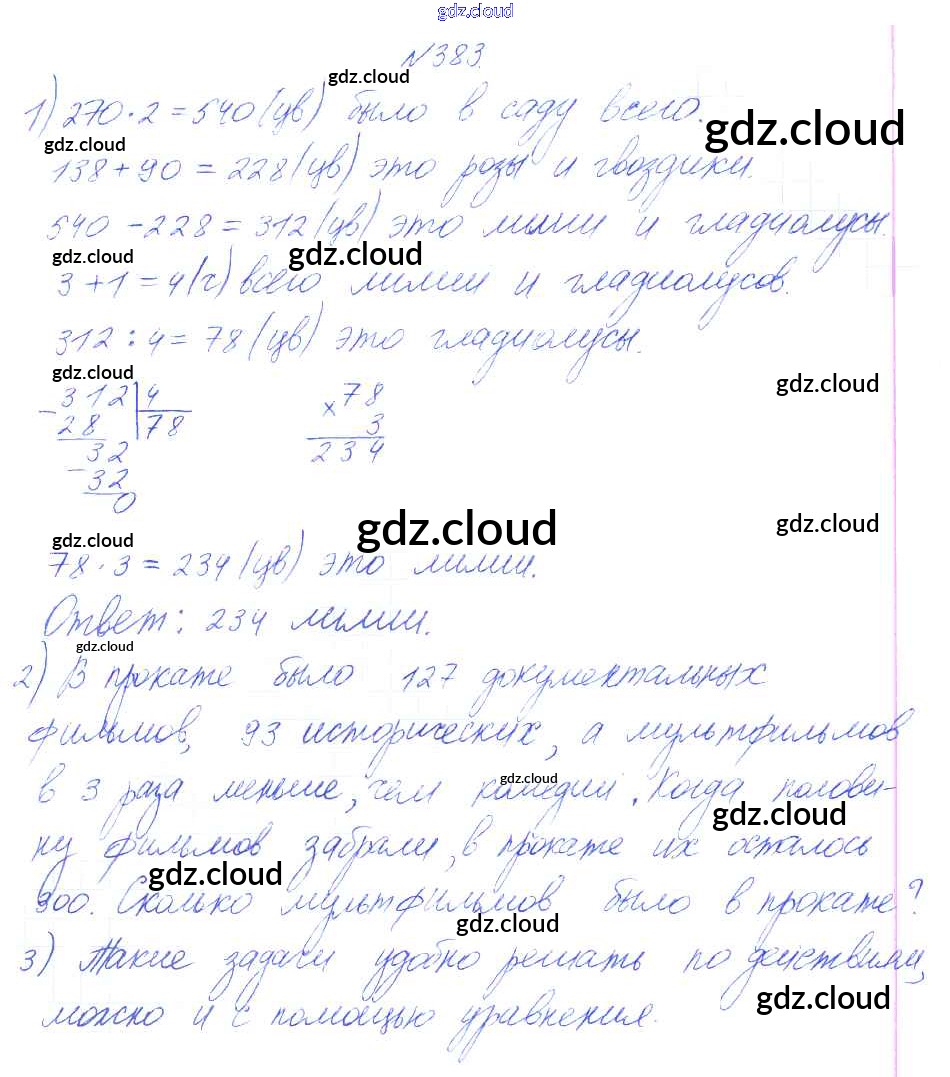 gdz.cloud
№383.
gdz.cloud
1) 270·2=540(цв) было в саду всего.
gdz.cloud
gdz.cloud
138+90=228(цв) это розы и гвоздики.
540-228=312(цв) это лилии и гладиолусы.
gdz.cloud
gdz.cloud
3+1=4(г) всего лилии и гладиолусов.
312:4=78(цв) это гладиолусы.
gdz.cloud
gdz.cloud
-312|4
28 78
-32
32
0
×78
3
234
gdz.cloud
gdz.cloud
gdz.cloud
78·3=234(цв) это лилии.
Ответ: 234 лилии.
gdz.cloud
2) В прокате было 127 документальных
фильмов, 93 исторических, а мультфильмов
gdz.cloud
в 3 раза меньше, чем комедии. Когда полови-
gdz.cloud
ну фильмов забрали, в прокате их осталось
gdz.cloud
300. Сколько мультфильмов было в прокате?
gdz.cloud
3) Такие задачи удобно решать по действиям,
gdz.cloud
можно и с помощью уравнения.